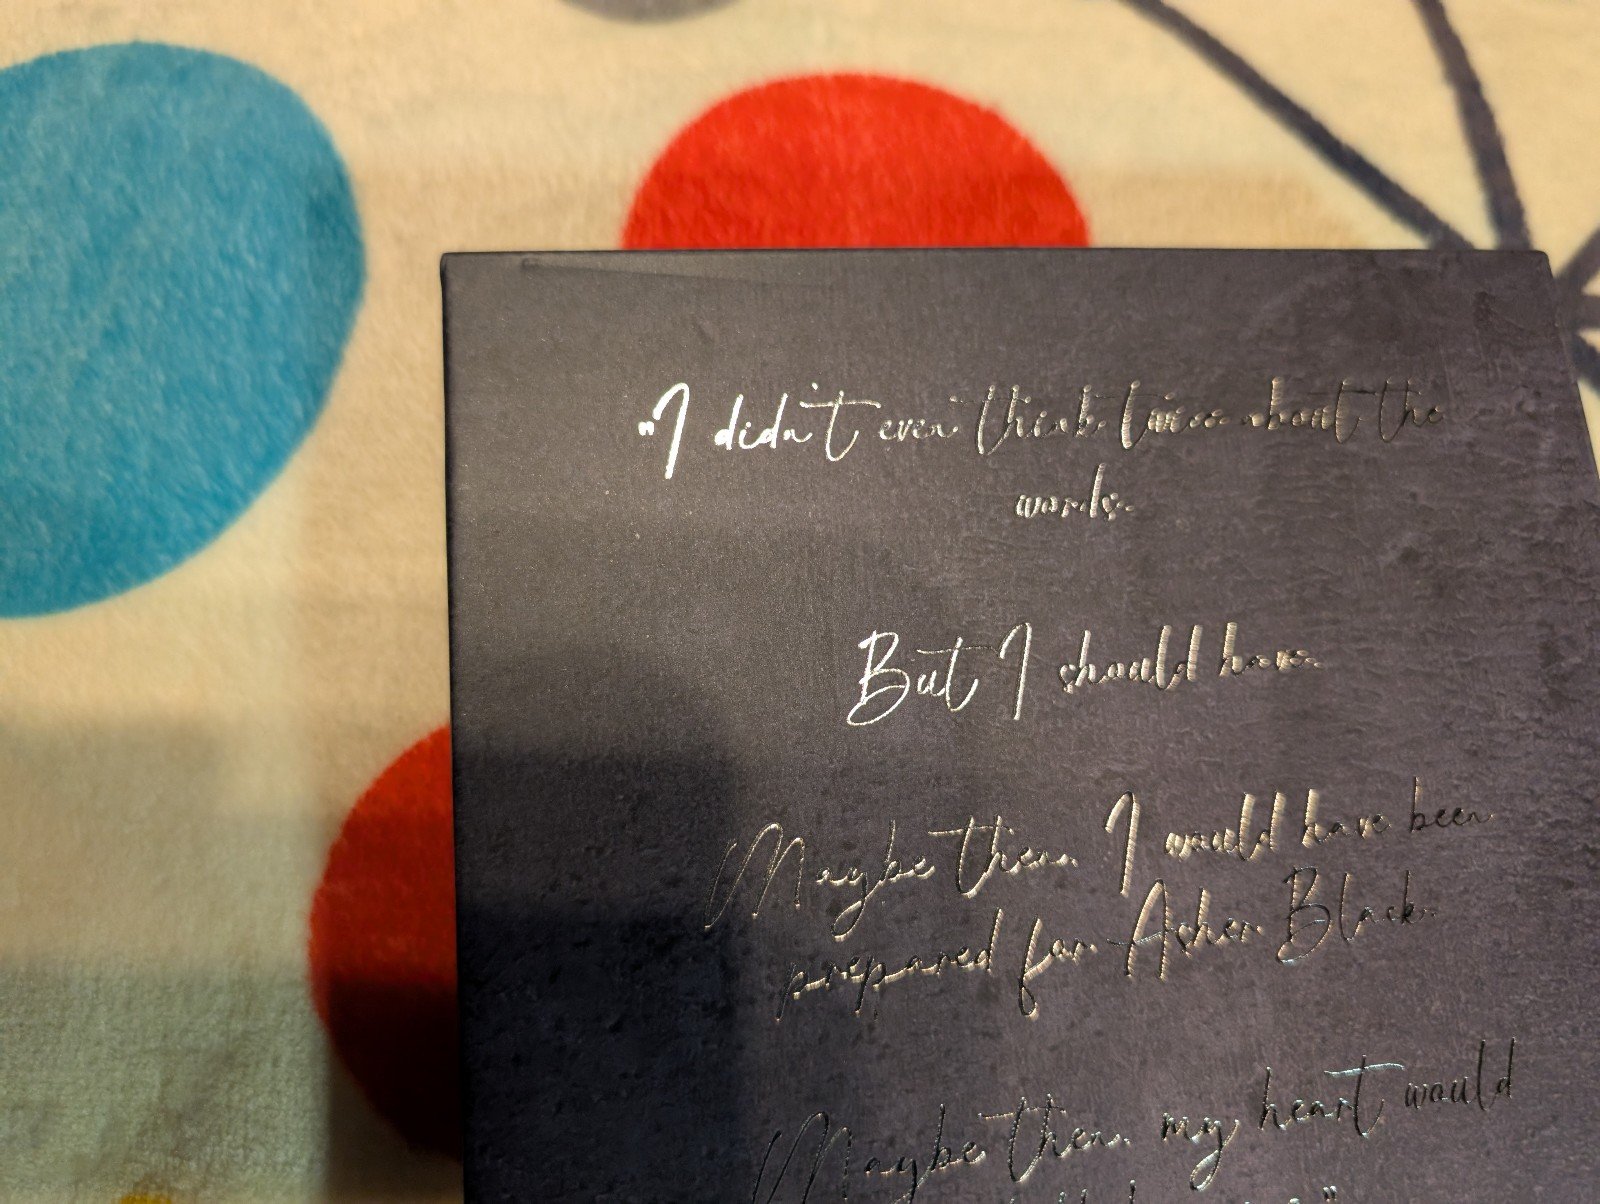 "I didn't even think twice about the
words.
But I should have.
Maybe then I would have been
prepared for Asher Black.
Maybe then my heart would